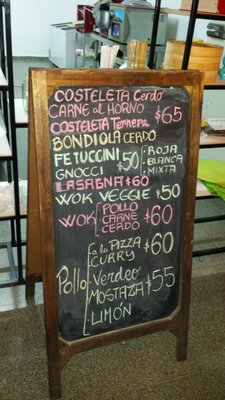 COSTELETA Cerdo
CARNE al HORNO $65
COSTELETA Ternera
BONDIOLA CERDO
FETUCCINI
GNOCCI $50
ROJA
BLANCA
MIXTA
LASAGNA $60
WOK VEGGIE $50
WOK
POLLO
CARNE
CERDO
$60
Pollo
a la PIZZA
CURRY
$60
Verdeo
MOSTAZA
LIMÓN
$55